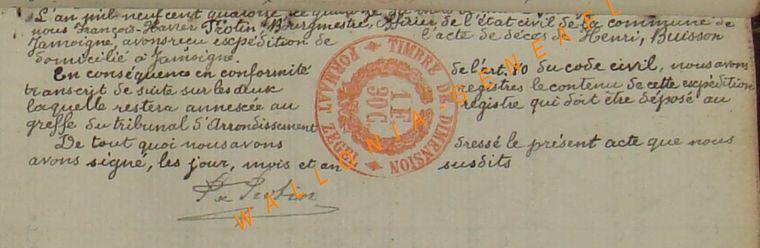 L'an mil neuf cent quatorze, le quinze du mois
nous François-Xavier Protin, Bourgmestre, Officier de l'état civil de la commune de
Jamoigne, avons reçu expédition de l'acte de décès de Henri, Buisson
domicilié à Jamoigne.
En conséquence en conformité de l'art. 80 du code civil, nous avons
transcrit de suite sur les deux registres le contenu de cette expédition
laquelle restera annexée au registre qui doit être déposé au
greffe du tribunal d'Arrondissement
De tout quoi nous avons dressé le présent acte que nous
avons signé, les jour, mois et an susdits
Fx Protin
TIMBRE DE DIMENSION
1F
90C
WALLONIA-GENEAEL